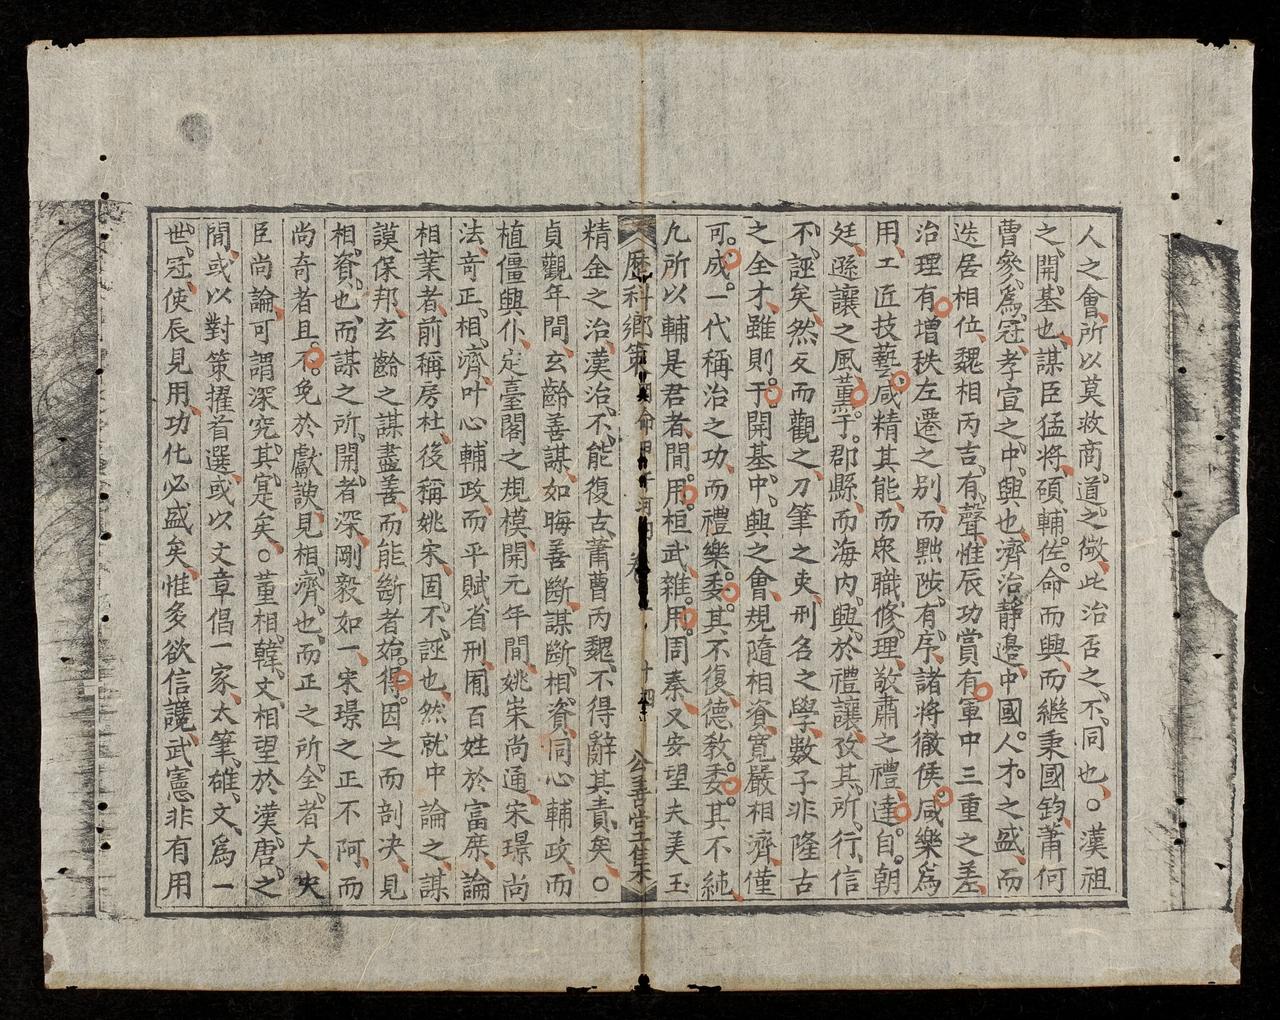 人之會、所以莫救商。道。之微、此治否之、不。同也。○漢祖
之、開、基也、謀臣猛將、碩、輔、佐。命而興、而繼秉國鈞、蕭何
曹參、爲、冠、孝宣之、中、興也、濟治靜邊、中國。人。才。之盛、而
迭居相位、魏相丙吉、有、聲、惟辰功賞有軍中三重之差、
治理有增秩左遷之別、而黜陟、有、序、諸將徹侯。咸樂爲
用、工匠技藝、咸精其能、而衆職修、理、敬肅之禮、達。自。朝
廷、遜讓之風、薰。于。郡縣、而海內、興、於禮讓、孜、其、所、行、信
不、誣矣、然夊而觀之、刀筆之吏、刑名之學、數子非隆古
之全才、雖則。于。開基、中、興之會、規隨相資、寬嚴相濟、僅
可。成。一代稱治之功、而禮樂、委。其、不復、德敎、委。其不純、
九所以輔是君者、間。用。桓武、雜。用。周秦、又安望夫美玉
歷科鄕策 卷 十四 公善堂集
精金之治、漢治、不、能、復古、蕭曹丙魏、不得辭其責矣。○
貞觀年間、玄齡善謀、如晦善斷、謀斷、相、資、同心輔政、而
植僵興仆、定臺閣之規模、開元年間、姚崇尙通、宋璟尙
法、奇正、相、濟、叶心輔政、而平賦省刑、囿百姓於富庶、論
相業者、前稱房杜、後稱姚宋、固、不、誣也、然就中論之、謀
謨保邦、玄齡之謀盡善、而能斷者始。得。因之而剖決、見
相、資、也、而謀之所、開、者深、剛毅如一、宋璟之正不阿、而
尙奇者且。不。免於獻諛、見相、濟、也、而正之所、全、者大、史
臣尙論、可謂深究、其、寔、矣。○董相、韓、文相望於漢。唐。之
間、或以對策擢首選、或以文章倡一家、太筆、雄、文、爲一
世、冠、使辰見用、功化必盛矣、惟多欲信讒、武憲非有用